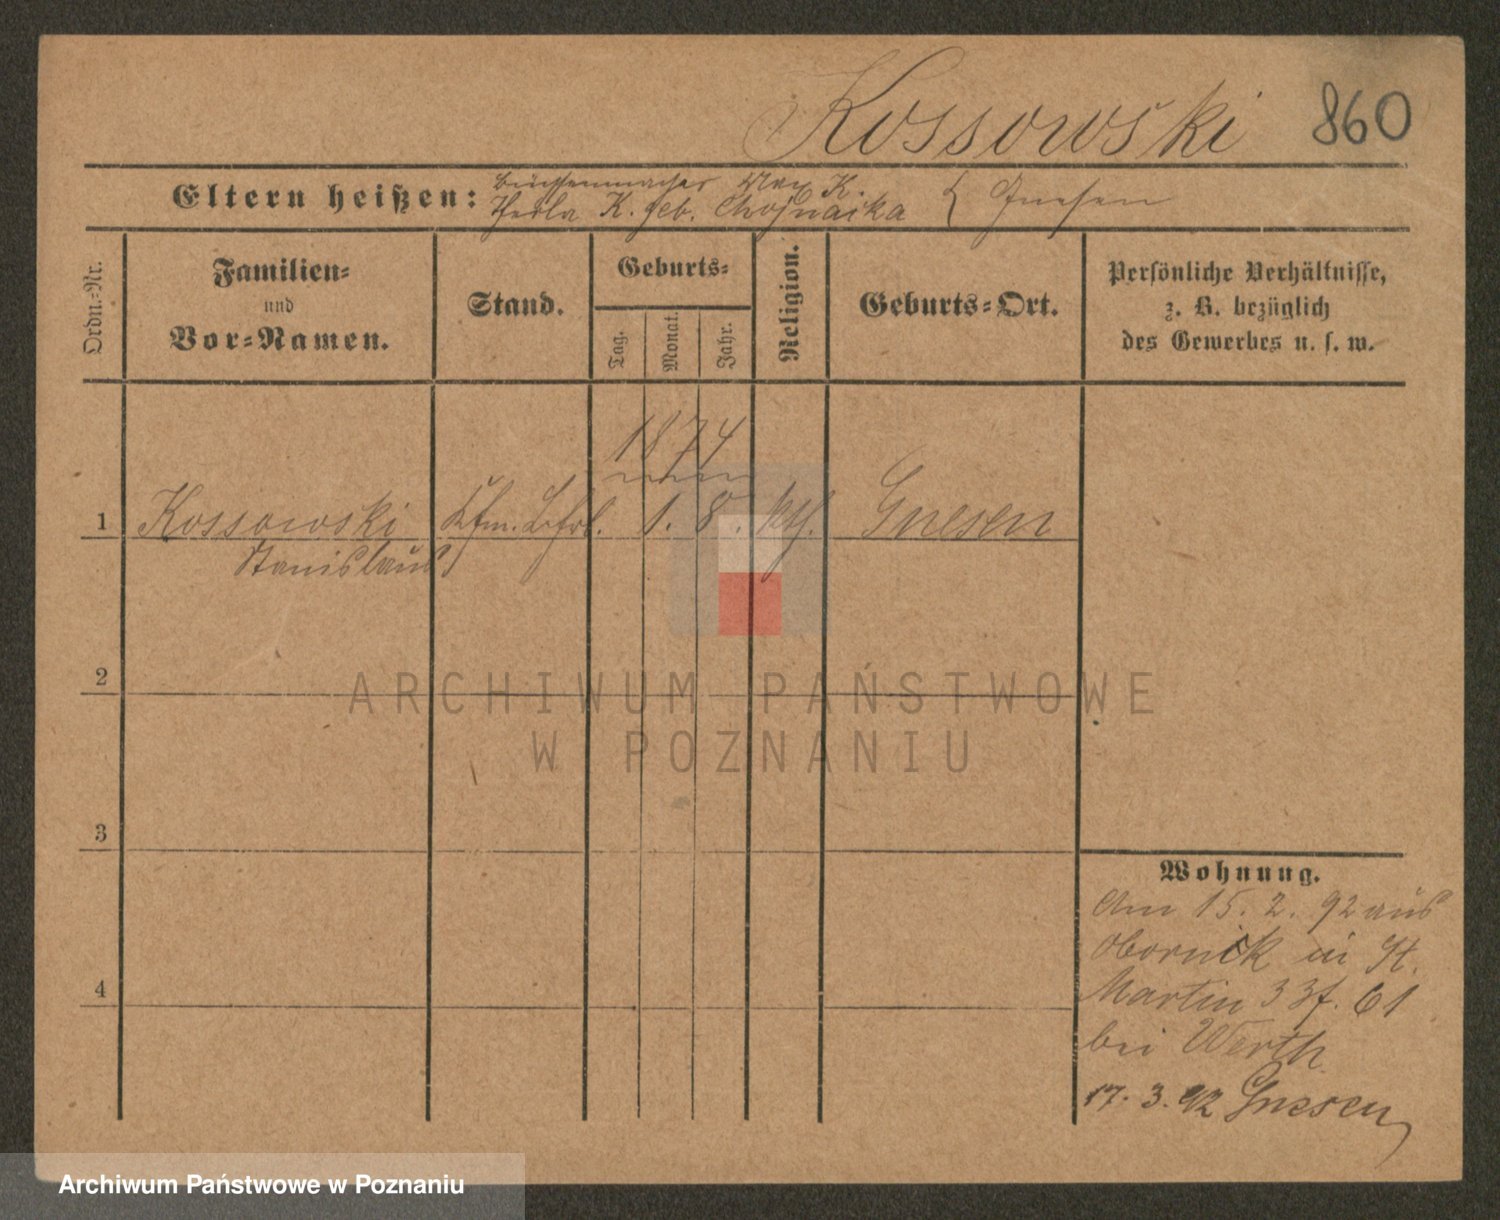 Kossowski 860
Eltern heißen: Büchsenmacher Max K.
Thekla K. geb. Chojnacka } Gnesen
Ordn.-Nr.
Familien-
und
Vor-Namen.
Stand.
Geburts-
Tag.
Monat.
Jahr.
Religion.
Geburts-Ort.
Persönliche Verhältnisse,
z. B. bezüglich
des Gewerbes u. s. w.
1874
1 Kossowski Kfm. Lehrl. 1. 8. kth. Gnesen
Stanislaus
2
3
4
Wohnung.
Am 15. 2. 92 aus
Obornik in St.
Martin 33 61
bei Werth
17. 3. 92 Gnesen
ARCHIWUM PAŃSTWOWE
W POZNANIU
Archiwum Państwowe w Poznaniu